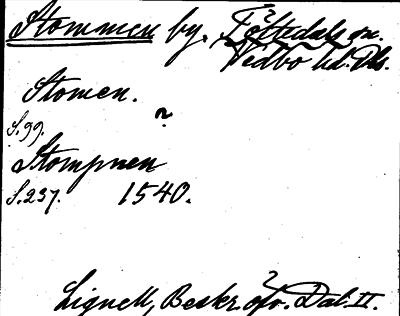 Stommen by. Töftedals sn.
Vedbo hd. Dls.
Stomen.
?
S. 99.
Stompnen
S. 237. 1540.
Lignell, Beskr. öfv. Dal. II.